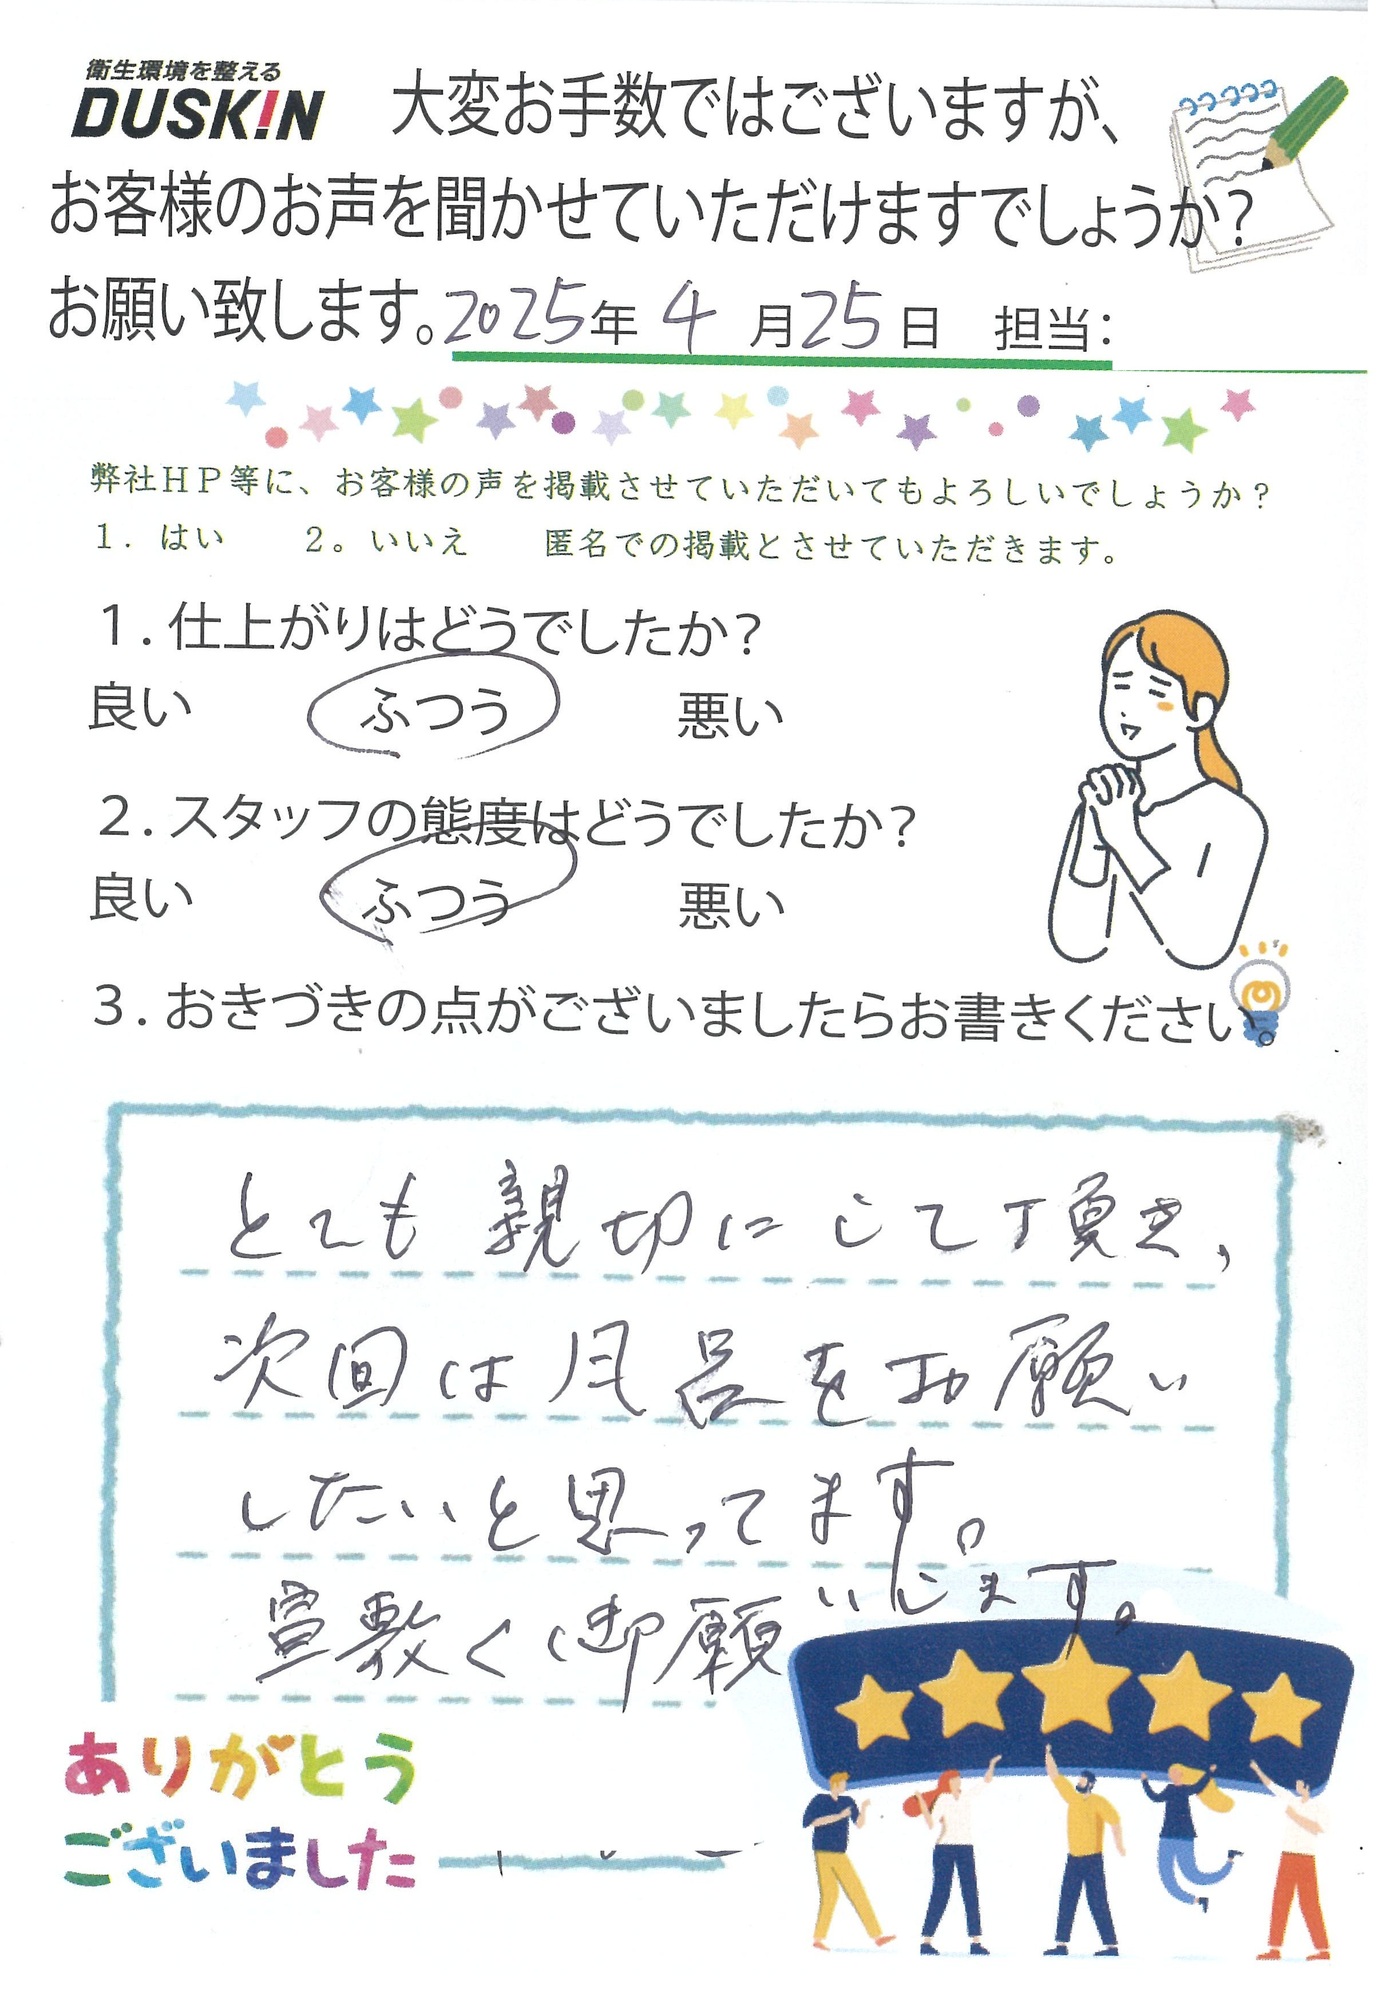 衛生環境を整える
DUSKIN
大変お手数ではございますが、
お客様のお声を聞かせていただけますでしょうか?
お願い致します。2025年 4 月25日 担当:
弊社HP等に、お客様の声を掲載させていただいてもよろしいでしょうか?
1. はい 2。いいえ 匿名での掲載とさせていただきます。
1.仕上がりはどうでしたか?
良い ふつう 悪い
2.スタッフの態度はどうでしたか?
良い ふつう 悪い
3.おきづきの点がございましたらお書きください。
とても親切にして頂き,
次回は風呂をお願い
したいと思ってます。
宜敷く御願いします。
ありがとう
ございました